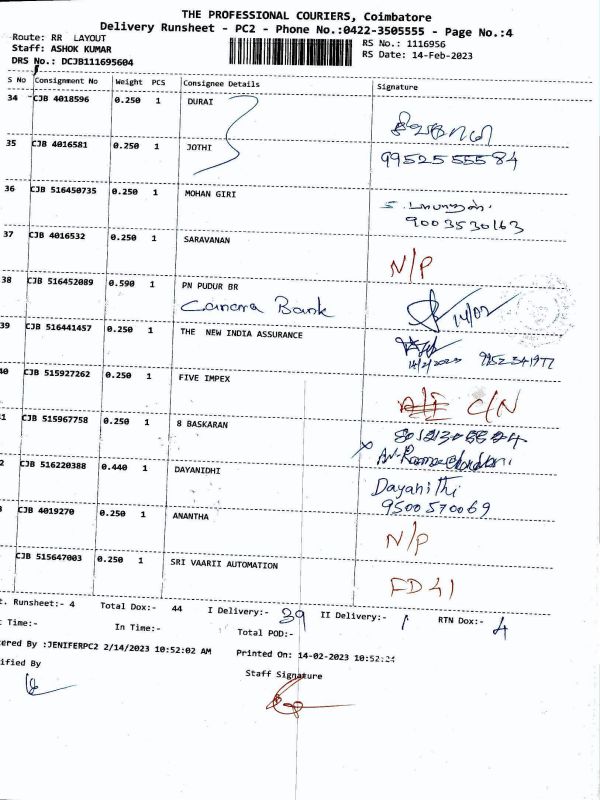 THE PROFESSIONAL COURIERS, Coimbatore
Delivery Runsheet - PC2 - Phone No.:0422-3505555 - Page No.:4
Route: RR LAYOUT
Staff: ASHOK KUMAR
DRS No.: DCJB111695604
RS No.: 1116956
RS Date: 14-Feb-2023
S No Consignment No Weight PCS Consignee Details Signature
34 CJB 4018596 0.250 1 DURAI
35 CJB 4016581 0.250 1 JOTHI
99525 55584
36 CJB 516450735 0.250 1 MOHAN GIRI
9003530163
37 CJB 4016532 0.250 1 SARAVANAN
N/P
38 CJB 516452089 0.590 1 PN PUDUR BR
Canara Bank
14/02
39 CJB 516441457 0.250 1 THE NEW INDIA ASSURANCE
14/2/2023
40 CJB 515927262 0.250 1 FIVE IMPEX
C/N
1 CJB 515967758 0.250 1 8 BASKARAN
2 CJB 516220388 0.440 1 DAYANIDHI
Dayanithi
9500570069
CJB 4019270 0.250 1 ANANTHA
N/P
CJB 515647003 0.250 1 SRI VAARII AUTOMATION
t. Runsheet:- 4 Total Dox:- 44 I Delivery:- 39 II Delivery:- 1 RTN Dox:- 4
t Time:- In Time:- Total POD:-
tered By :JENIFERPC2 2/14/2023 10:52:02 AM Printed On: 14-02-2023 10:52:24
ified By Staff Signature